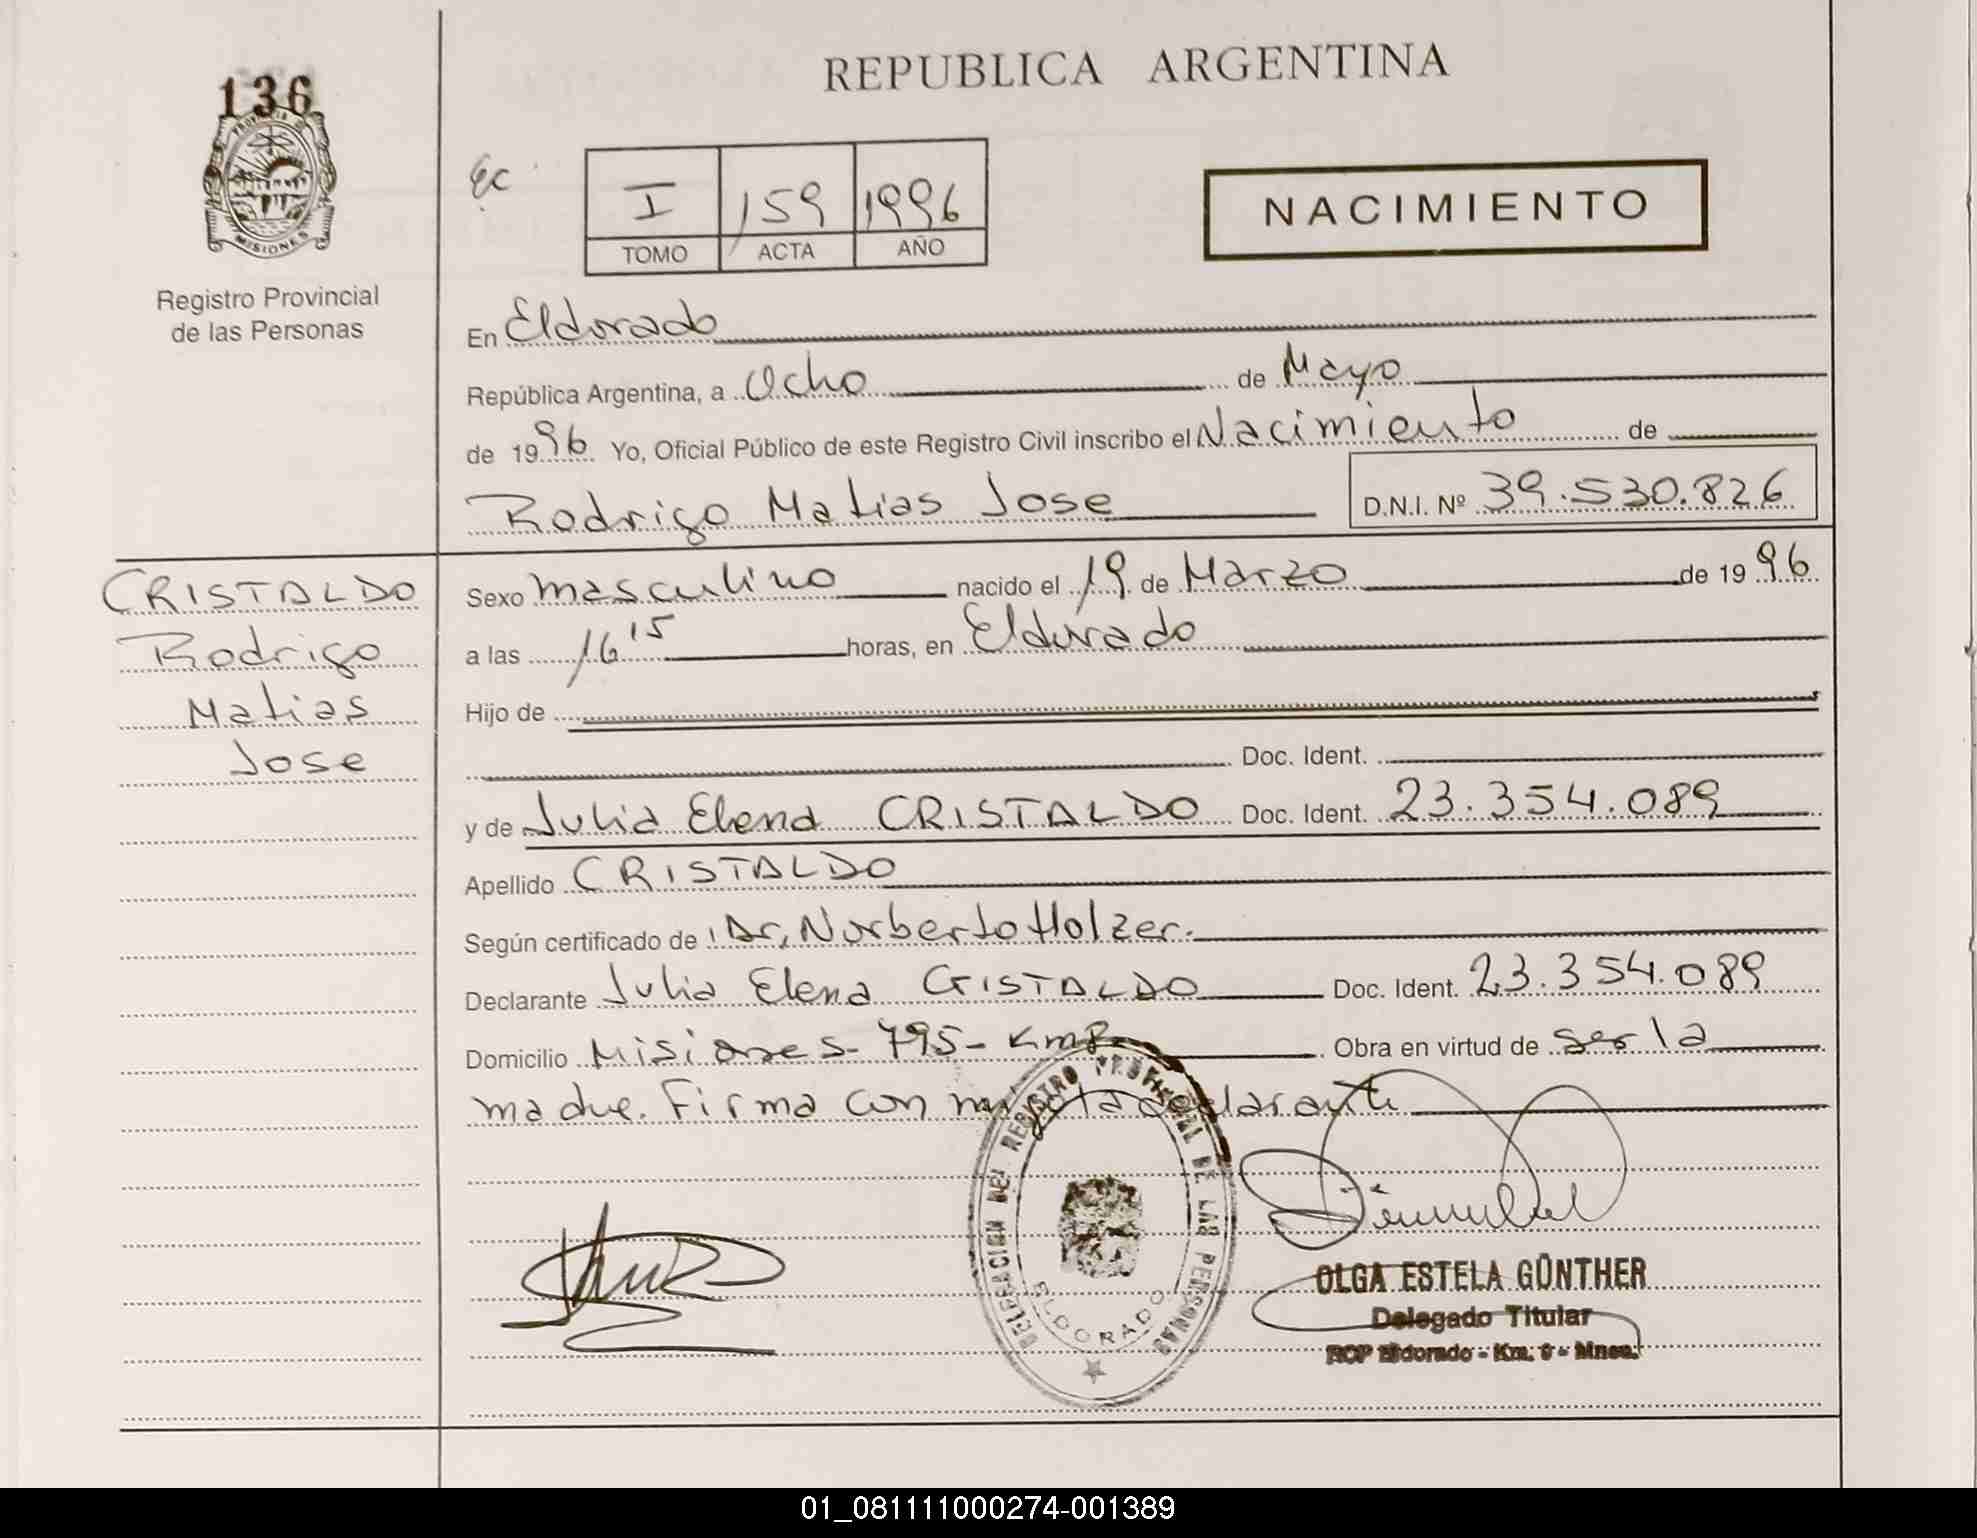 136
PROVINCIA DE
MISIONES
Registro Provincial
de las Personas
REPUBLICA ARGENTINA
Ec
I 159 1996
TOMO ACTA AÑO
NACIMIENTO
En Eldorado
República Argentina, a Ocho de Mayo
de 1996 Yo, Oficial Público de este Registro Civil inscribo el Nacimiento de
Rodrigo Matias Jose D.N.I. Nº 39.530.826
CRISTALDO
Rodrigo
Matias
Jose
Sexo masculino nacido el 19 de Marzo de 1996
a las 16 15 horas, en Eldorado
Hijo de
Doc. Ident.
y de Julia Elena CRISTALDO Doc. Ident. 23.354.089
Apellido CRISTALDO
Según certificado de Dr, Norberto Holzer.
Declarante Julia Elena CRISTALDO Doc. Ident. 23.354.089
Domicilio Misiones- 795- Km 8 Obra en virtud de ser la
madre. Firma con declarante
DELEGACION DEL REGISTRO PROVINCIAL DE LAS PERSONAS
ELDORADO
OLGA ESTELA GÜNTHER
Delegado Titular
RCP Eldorado - Km. 9 - Mnes.
01_081111000274-001389